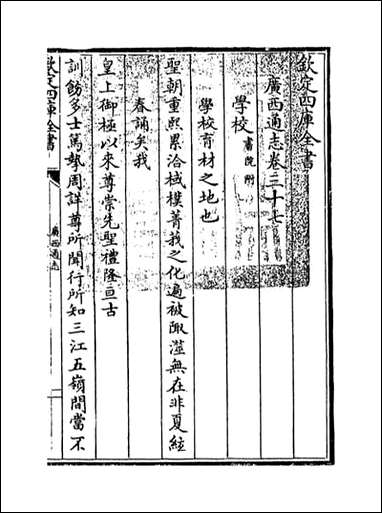 欽定四庫全書
廣西通志卷三十七
學校書院附
學校育材之地也
聖朝重熙累洽棫樸菁莪之化遍被陬澨無在非夏絃
春誦矣我
皇上御極以來尊崇先聖禮隆亘古
訓飭多士篤摯周詳尊所聞行所知三江五嶺間當不
欽定四庫全書
廣西通志
一